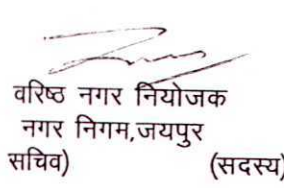 वरिष्ठ नगर नियोजक
नगर निगम,जयपुर
सचिव) (सदस्य)